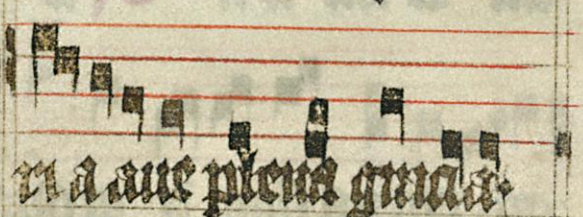 ri a aue plena gracia.